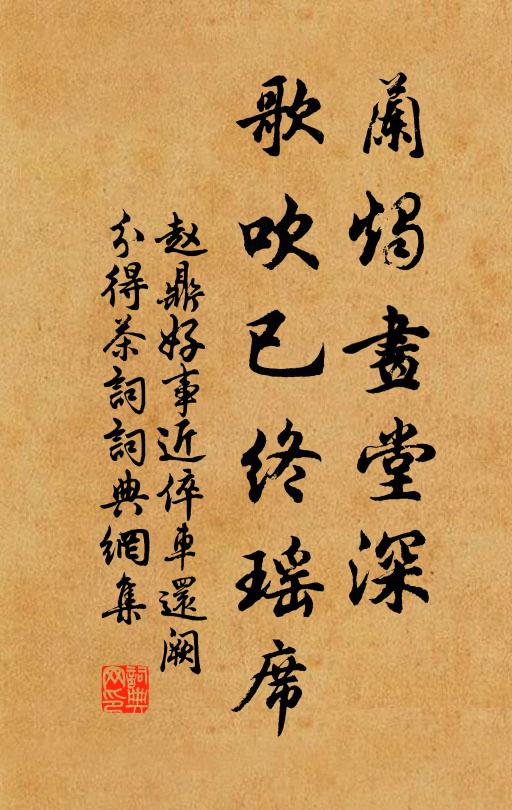 蘭燭畫堂深
歌吹已終瑶席
赵鼎好事近倅車還阙
分得茶詞詞典網集
詞典網印